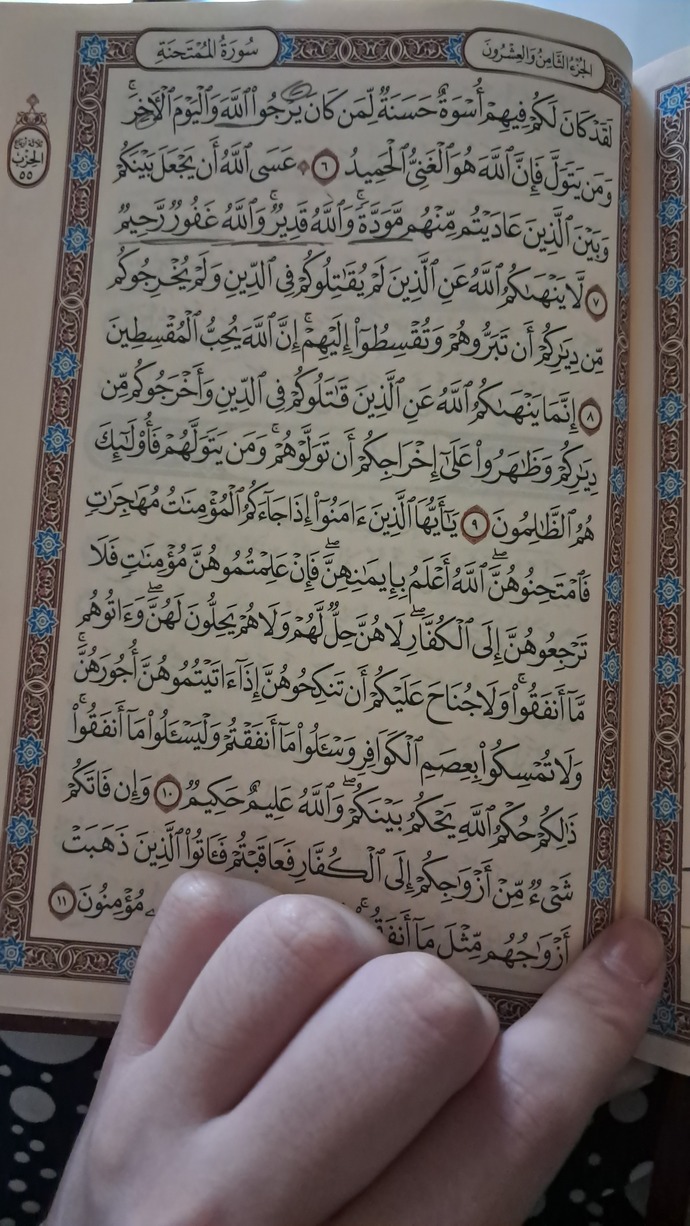 سُورَةُ المُمْتَحنَةِ
الجُزْءُ الثَّامِنُ وَالعِشْرُونَ
ثلاثة أرباع
الحِزْب
٥٥
لَقَدْ كَانَ لَكُمْ فِيهِمْ أُسْوَةٌ حَسَنَةٌ لِّمَن كَانَ يَرْجُوا۟ ٱللَّهَ وَٱلْيَوْمَ ٱلْءَاخِرَ ۚ
وَمَن يَتَوَلَّ فَإِنَّ ٱللَّهَ هُوَ ٱلْغَنِىُّ ٱلْحَمِيدُ ٦ ۞ عَسَى ٱللَّهُ أَن يَجْعَلَ بَيْنَكُمْ
وَبَيْنَ ٱلَّذِينَ عَادَيْتُم مِّنْهُم مَّوَدَّةً ۚ وَٱللَّهُ قَدِيرٌ ۚ وَٱللَّهُ غَفُورٌ رَّحِيمٌ
٧ لَّا يَنْهَىٰكُمُ ٱللَّهُ عَنِ ٱلَّذِينَ لَمْ يُقَٰتِلُوكُمْ فِى ٱلدِّينِ وَلَمْ يُخْرِجُوكُم
مِّن دِيَٰرِكُمْ أَن تَبَرُّوهُمْ وَتُقْسِطُوٓا۟ إِلَيْهِمْ ۚ إِنَّ ٱللَّهَ يُحِبُّ ٱلْمُقْسِطِينَ
٨ إِنَّمَا يَنْهَىٰكُمُ ٱللَّهُ عَنِ ٱلَّذِينَ قَٰتَلُوكُمْ فِى ٱلدِّينِ وَأَخْرَجُوكُم مِّن
دِيَٰرِكُمْ وَظَٰهَرُوا۟ عَلَىٰٓ إِخْرَاجِكُمْ أَن تَوَلَّوْهُمْ ۚ وَمَن يَتَوَلَّهُمْ فَأُو۟لَٰٓئِكَ
هُمُ ٱلظَّٰلِمُونَ ٩ يَٰٓأَيُّهَا ٱلَّذِينَ ءَامَنُوٓا۟ إِذَا جَآءَكُمُ ٱلْمُؤْمِنَٰتُ مُهَٰجِرَٰتٍ
فَٱمْتَحِنُوهُنَّ ۖ ٱللَّهُ أَعْلَمُ بِإِيمَٰنِهِنَّ ۖ فَإِنْ عَلِمْتُمُوهُنَّ مُؤْمِنَٰتٍ فَلَا
تَرْجِعُوهُنَّ إِلَى ٱلْكُفَّارِ ۖ لَا هُنَّ حِلٌّ لَّهُمْ وَلَا هُمْ يَحِلُّونَ لَهُنَّ ۖ وَءَاتُوهُم
مَّآ أَنفَقُوا۟ ۚ وَلَا جُنَاحَ عَلَيْكُمْ أَن تَنكِحُوهُنَّ إِذَآ ءَاتَيْتُمُوهُنَّ أُجُورَهُنَّ ۚ
وَلَا تُمْسِكُوا۟ بِعِصَمِ ٱلْكَوَافِرِ وَسْـَٔلُوا۟ مَآ أَنفَقْتُمْ وَلْيَسْـَٔلُوا۟ مَآ أَنفَقُوا۟ ۚ
ذَٰلِكُمْ حُكْمُ ٱللَّهِ يَحْكُمُ بَيْنَكُمْ ۖ وَٱللَّهُ عَلِيمٌ حَكِيمٌ ١٠ وَإِن فَاتَكُمْ
شَىْءٌ مِّنْ أَزْوَٰجِكُمْ إِلَى ٱلْكُفَّارِ فَعَاقَبْتُمْ فَـَٔاتُوا۟ ٱلَّذِينَ ذَهَبَتْ
أَزْوَٰجُهُم مِّثْلَ مَآ أَنفَقُوا۟ ۚ مُؤْمِنُونَ ١١